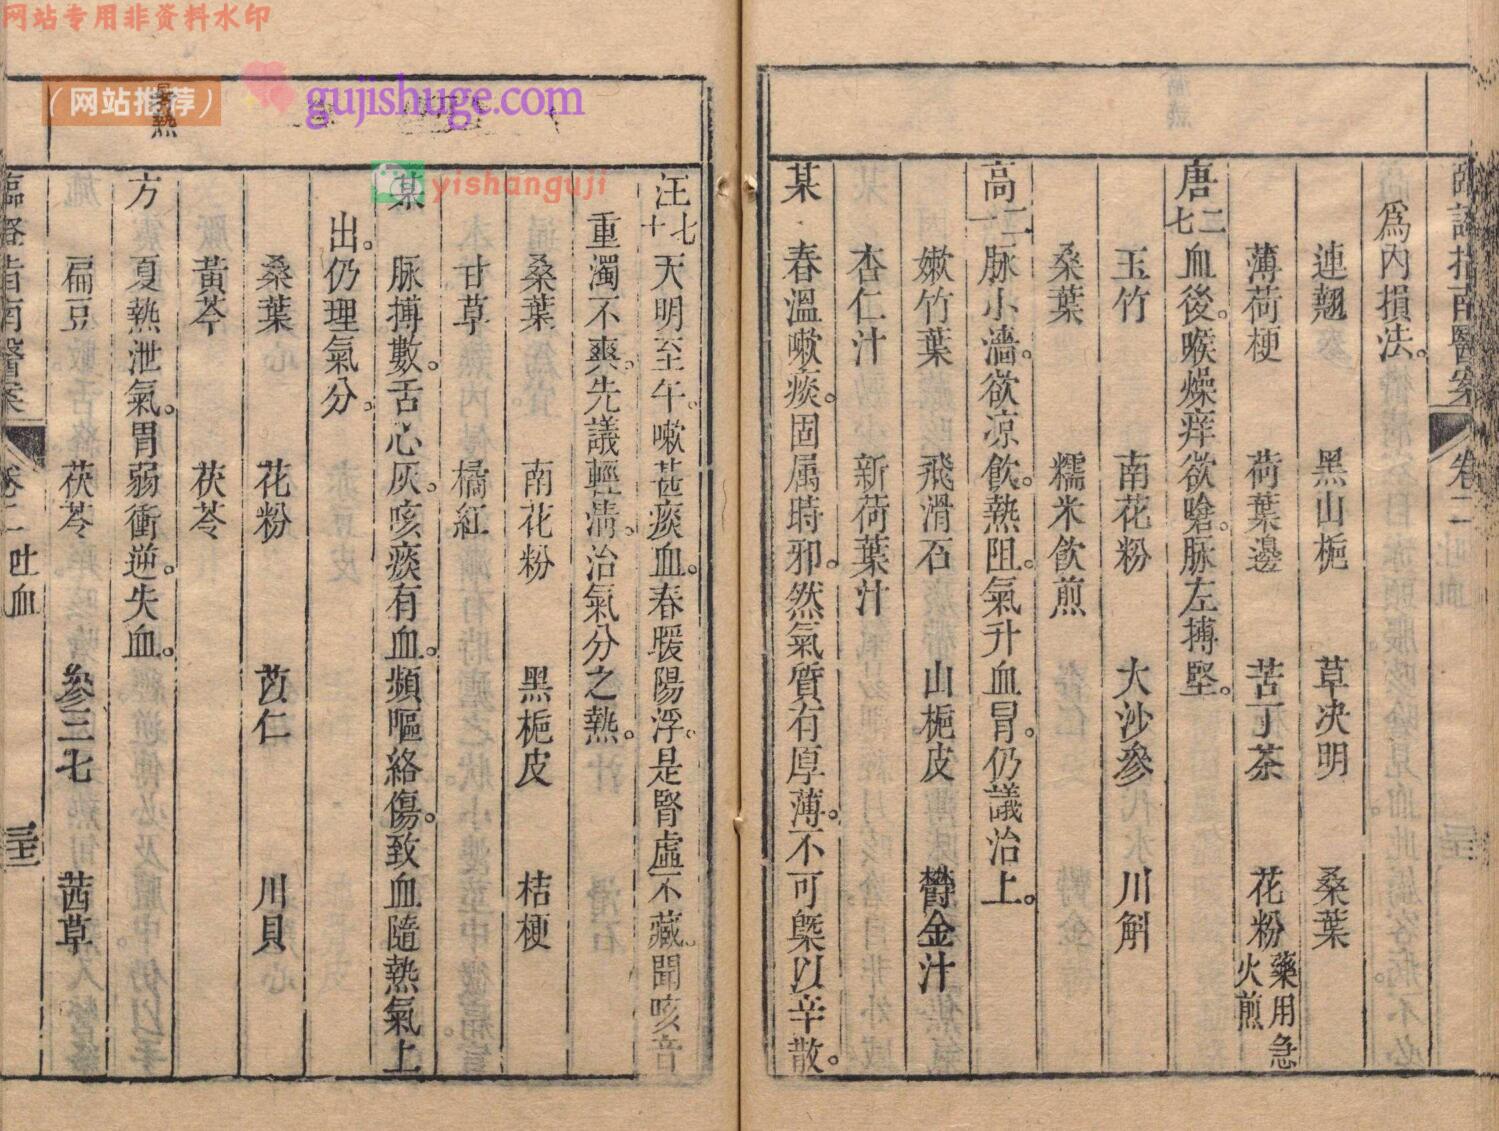 网站专用非资料水印
(网站推荐)
gujishuge.com
yishanguji
卷二
爲內損法。
連翹 黑山梔 草决明 桑葉
薄荷梗 荷葉邊 苦丁茶 花粉 藥用急火煎
唐 二七 血後。喉燥痒欲嗆。脉左搏堅。
玉竹 南花粉 大沙參 川斛
桑葉 糯米飲煎
高 二一 脉小濇。欲凉飲。熱阻。氣升血冒。仍議治上。
嫩竹葉 飛滑石 山梔皮 欝金汁
杏仁汁 新荷葉汁
某 春溫嗽痰。固属時邪。然氣質有厚薄。不可槩以辛散。
汪 七十 天明至午。嗽甚痰血。春暖陽浮。是腎虛不藏。聞咳音
重濁不爽。先議輕淸。治氣分之熱。
桑葉 南花粉 黑梔皮 桔梗
甘草 橘紅
某 脉搏數。舌心灰。咳痰有血。頻嘔絡傷。致血隨熱氣上
出。仍理氣分。
桑葉 花粉 苡仁 川貝
黃芩 茯苓
方 夏熱泄氣。胃弱衝逆。失血。
扁豆 茯苓 參三七 茜草
臨證指南醫案 卷二 吐血
熱